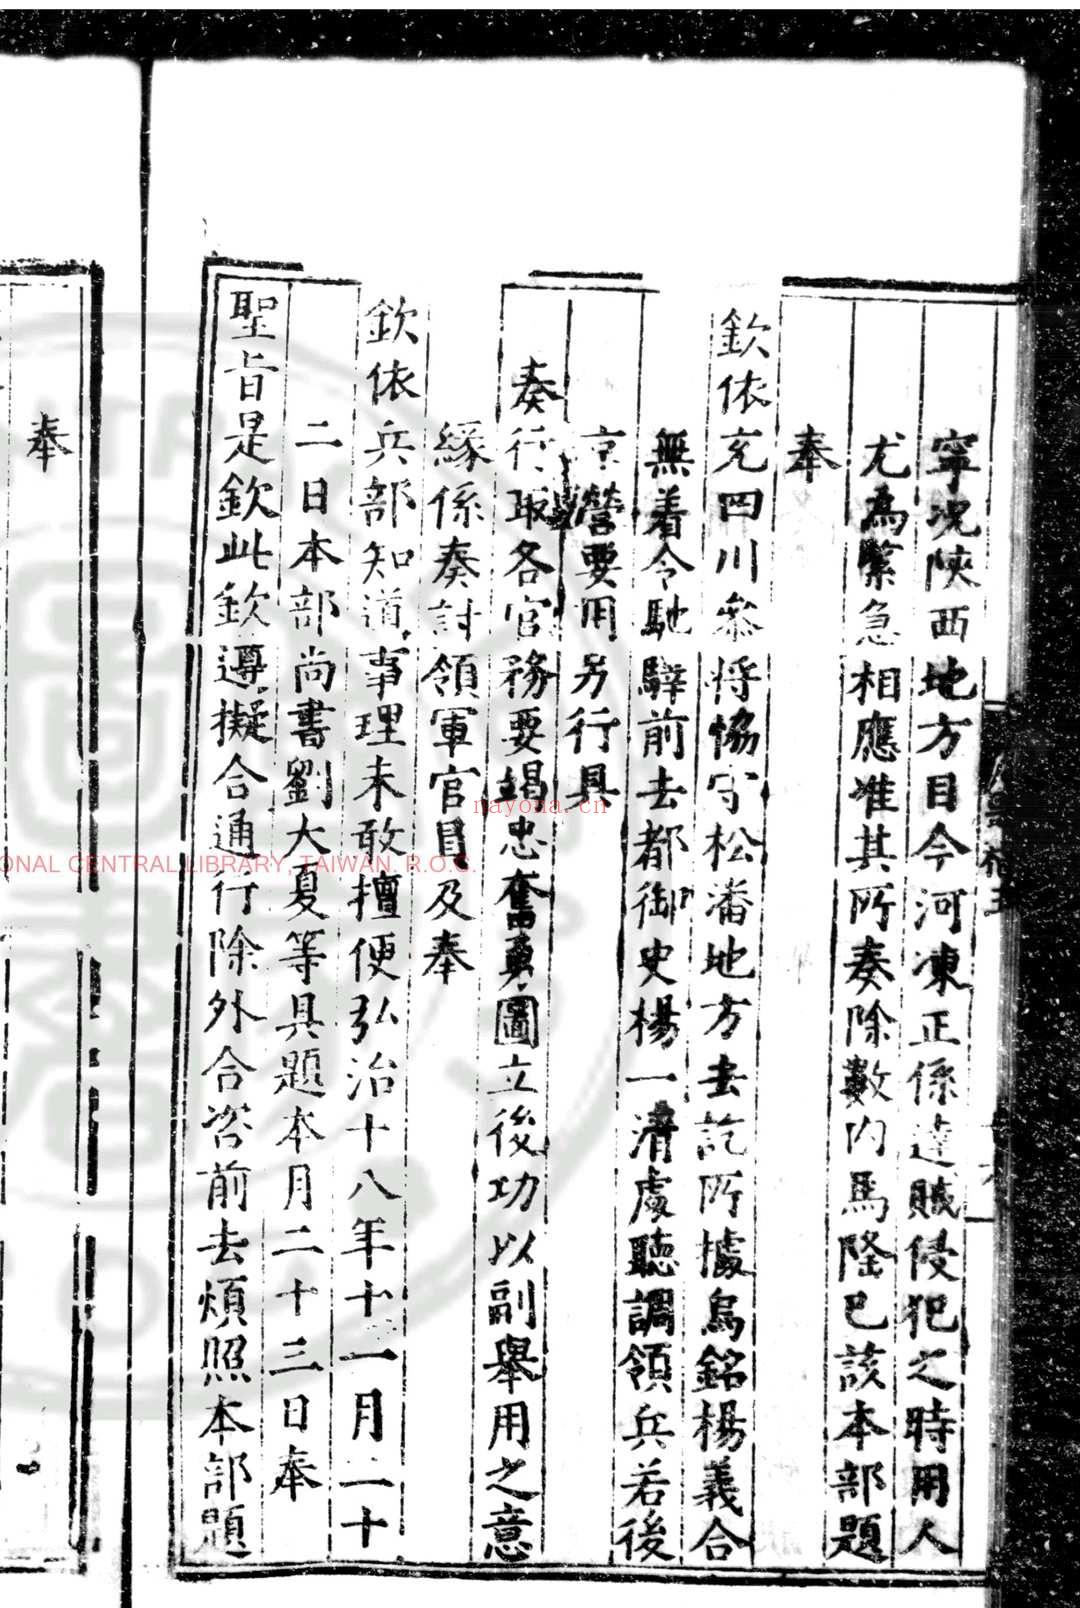 寧況陝西地方目今河凍正係達賊侵犯之時用人
尤為緊急相應准其所奏除數內馬隆已該本部題
奉
欽依充四川叅將協守松潘地方去訖所據烏銘楊義合
無着令馳驛前去都御史楊一清處聽調領兵若後
京營要用另行具
奏行取各官務要竭忠奮勇圖立後功以副舉用之意
緣係奏討領軍官員及奉
欽依兵部知道事理未敢擅便弘治十八年十一月二十
二日本部尚書劉大夏等具題本月二十三日奉
聖旨是欽此欽遵擬合通行除外合咨前去煩照本部題
奉
nayona.cn
ONAL CENTRAL LIBRARY, TAIWAN. R.O.C.